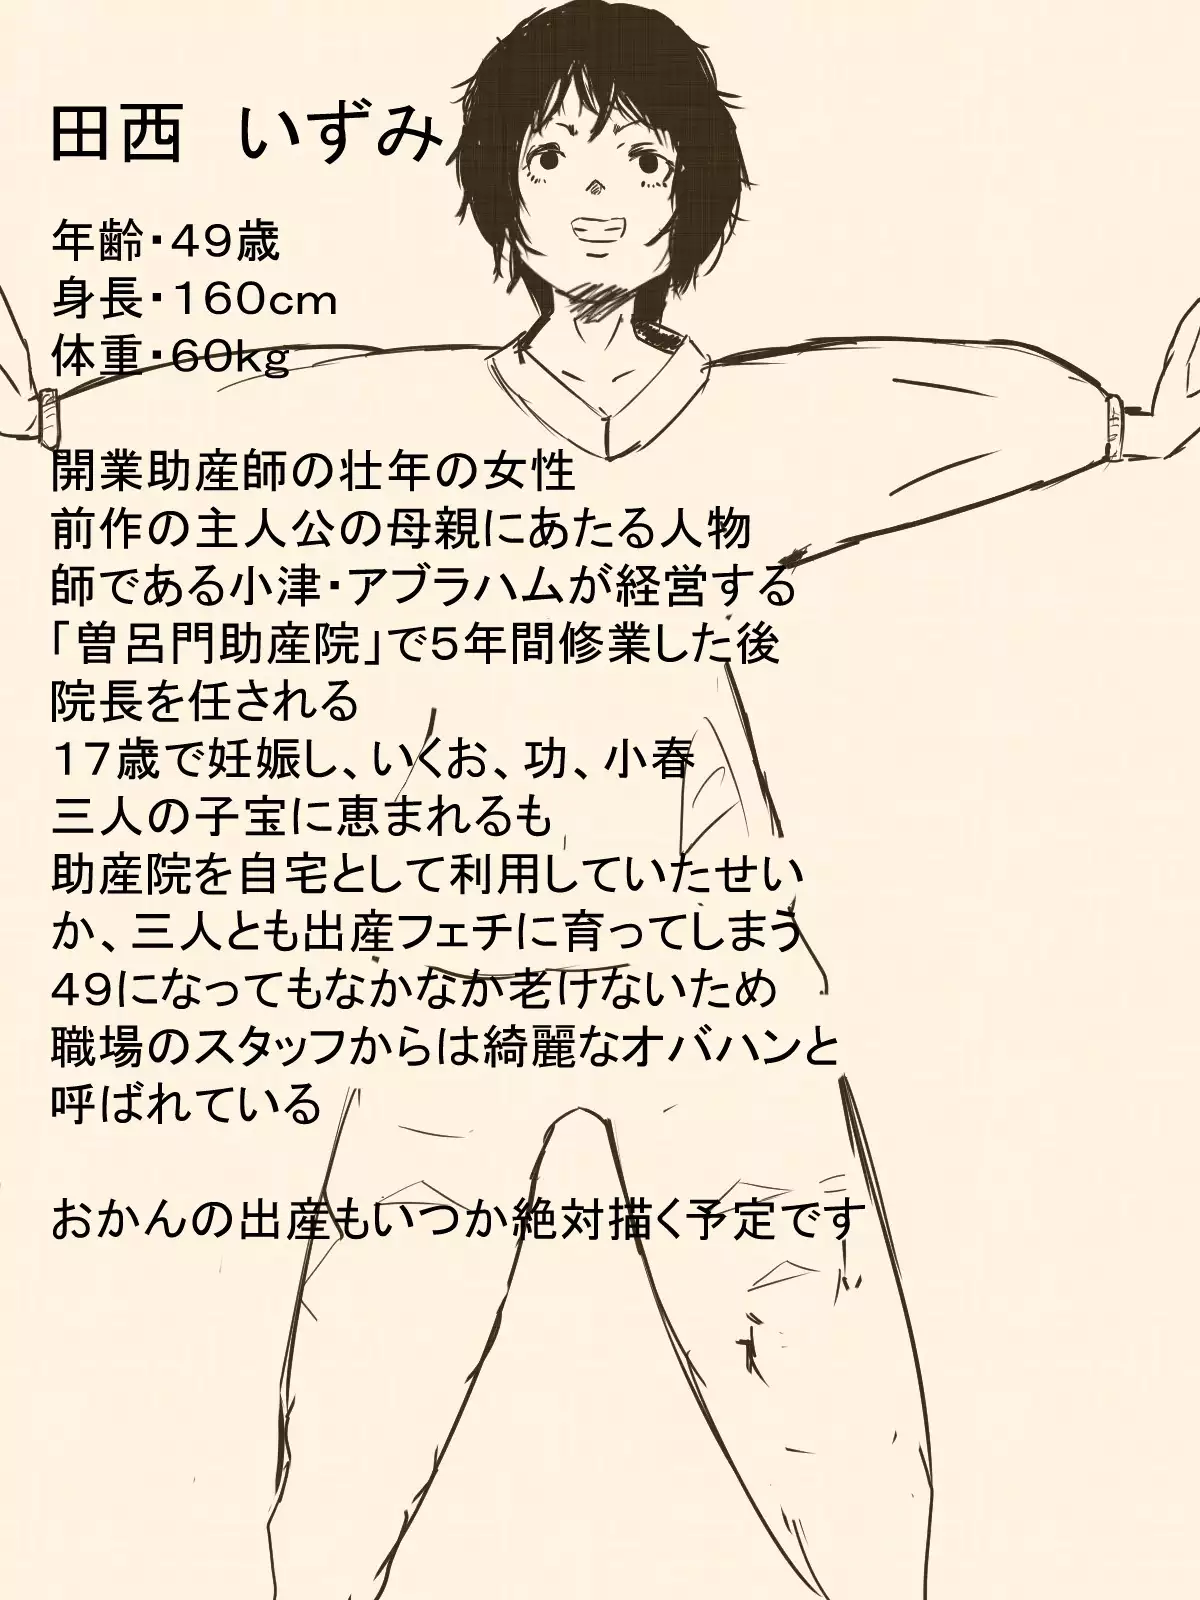 田西　いずみ
年齢・４９歳
身長・１６０cm
体重・６０kg
開業助産師の壮年の女性
前作の主人公の母親にあたる人物
師である小津・アブラハムが経営する
「曽呂門助産院」で５年間修業した後
院長を任される
１７歳で妊娠し、いくお、功、小春
三人の子宝に恵まれるも
助産院を自宅として利用していたせい
か、三人とも出産フェチに育ってしまう
４９になってもなかなか老けないため
職場のスタッフからは綺麗なオバハンと
呼ばれている
おかんの出産もいつか絶対描く予定です